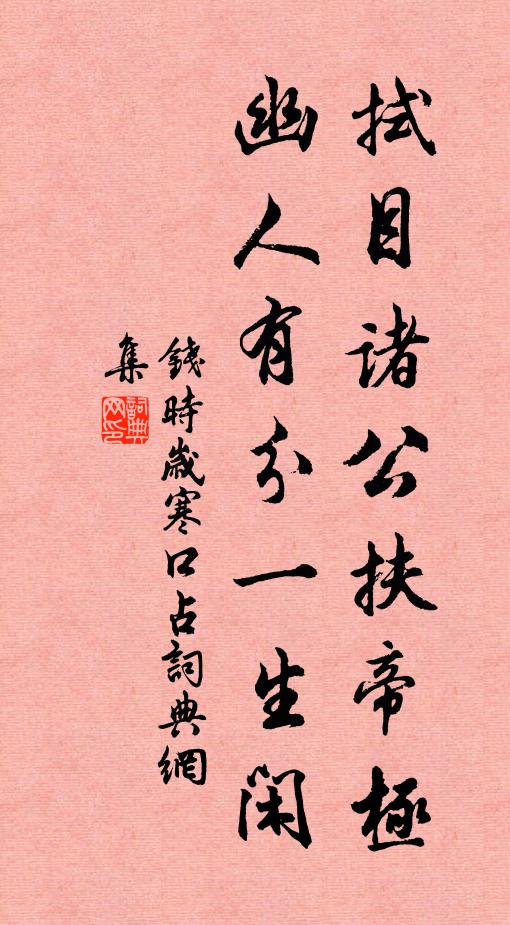 拭目諸公扶帝極
幽人有分一生閑
錢時歲寒口占詞典網
集
詞典
网印